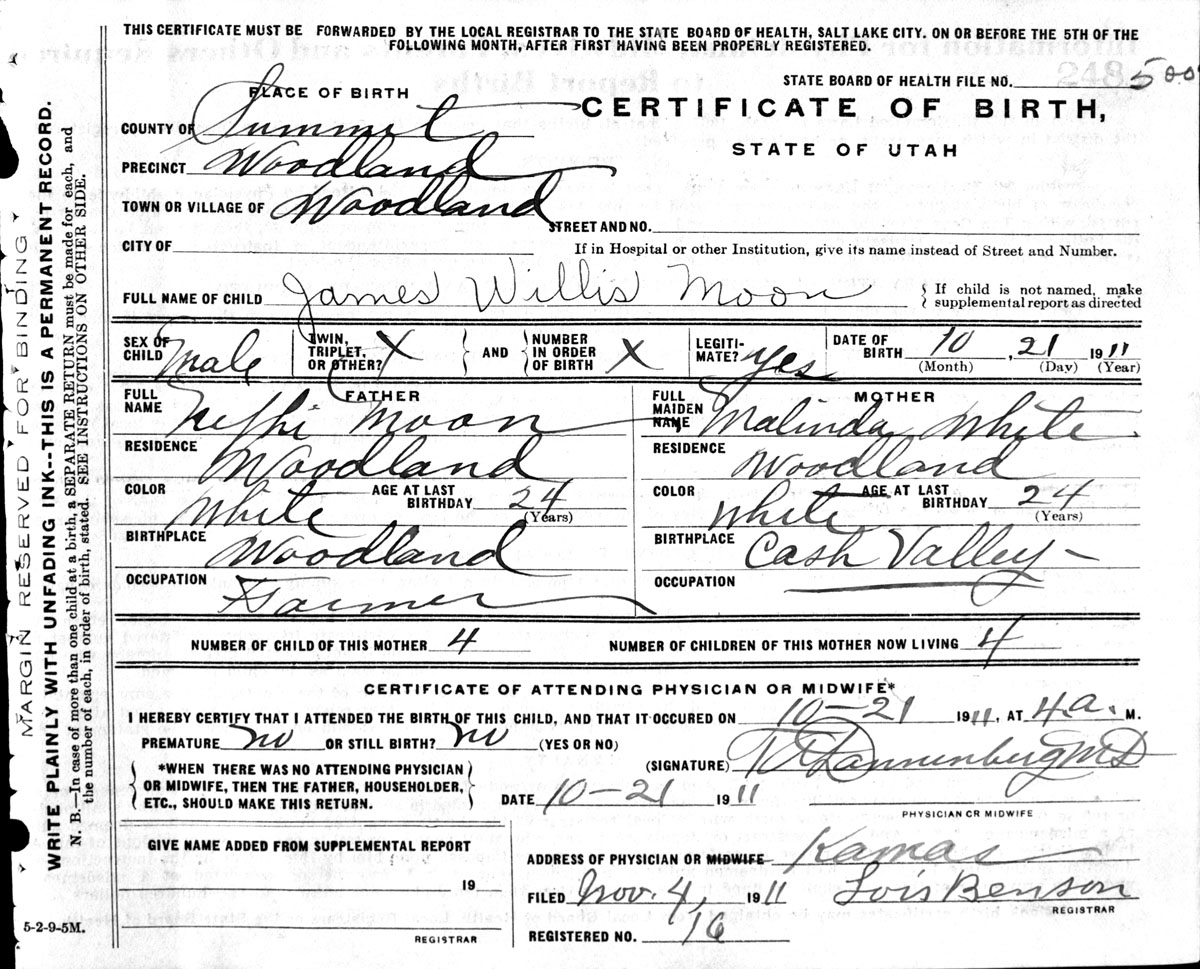 THIS CERTIFICATE MUST BE FORWARDED BY THE LOCAL REGISTRAR TO THE STATE BOARD OF HEALTH, SALT LAKE CITY. ON OR BEFORE THE 5TH OF THE
FOLLOWING MONTH, AFTER FIRST HAVING BEEN PROPERLY REGISTERED.
STATE BOARD OF HEALTH FILE NO.
248
PLACE OF BIRTH
CERTIFICATE OF BIRTH,
STATE OF UTAH
COUNTY OF Summit
PRECINCT Woodland
TOWN OR VILLAGE OF Woodland
STREET AND NO.
CITY OF
If in Hospital or other Institution, give its name instead of Street and Number.
FULL NAME OF CHILD James Willis Moon { If child is not named, make
supplemental report as directed
SEX OF CHILD Male
TWIN, TRIPLET, OR OTHER? X } AND { NUMBER IN ORDER OF BIRTH X
LEGITI-MATE? yes
DATE OF BIRTH 10, 21 1911
(Month) (Day) (Year)
FATHER
FULL NAME Nephi Moon
RESIDENCE Woodland
COLOR White AGE AT LAST BIRTHDAY 24
(Years)
BIRTHPLACE Woodland
OCCUPATION Farmer
MOTHER
FULL MAIDEN NAME Malinda White
RESIDENCE Woodland
COLOR White AGE AT LAST BIRTHDAY 24
(Years)
BIRTHPLACE Cash Valley
OCCUPATION
NUMBER OF CHILD OF THIS MOTHER 4 NUMBER OF CHILDREN OF THIS MOTHER NOW LIVING 4
CERTIFICATE OF ATTENDING PHYSICIAN OR MIDWIFE*
I HEREBY CERTIFY THAT I ATTENDED THE BIRTH OF THIS CHILD, AND THAT IT OCCURED ON 10-21 1911, AT 4 a. M.
PREMATURE no OR STILL BIRTH? no (YES OR NO)
{ *WHEN THERE WAS NO ATTENDING PHYSICIAN
OR MIDWIFE, THEN THE FATHER, HOUSEHOLDER,
ETC., SHOULD MAKE THIS RETURN. }
(SIGNATURE) Dannenberg MD
DATE 10-21 1911
PHYSICIAN OR MIDWIFE
GIVE NAME ADDED FROM SUPPLEMENTAL REPORT
19
REGISTRAR
ADDRESS OF PHYSICIAN OR MIDWIFE Kamas
FILED Nov. 4, 1911 Lois Benson
REGISTRAR
REGISTERED NO. 16
5-2-9-5M.
MARGIN RESERVED FOR BINDING
WRITE PLAINLY WITH UNFADING INK--THIS IS A PERMANENT RECORD.
N. B.—In case of more than one child at a birth, a SEPARATE RETURN must be made for each, and
the number of each, in order of birth, stated. SEE INSTRUCTIONS ON OTHER SIDE.